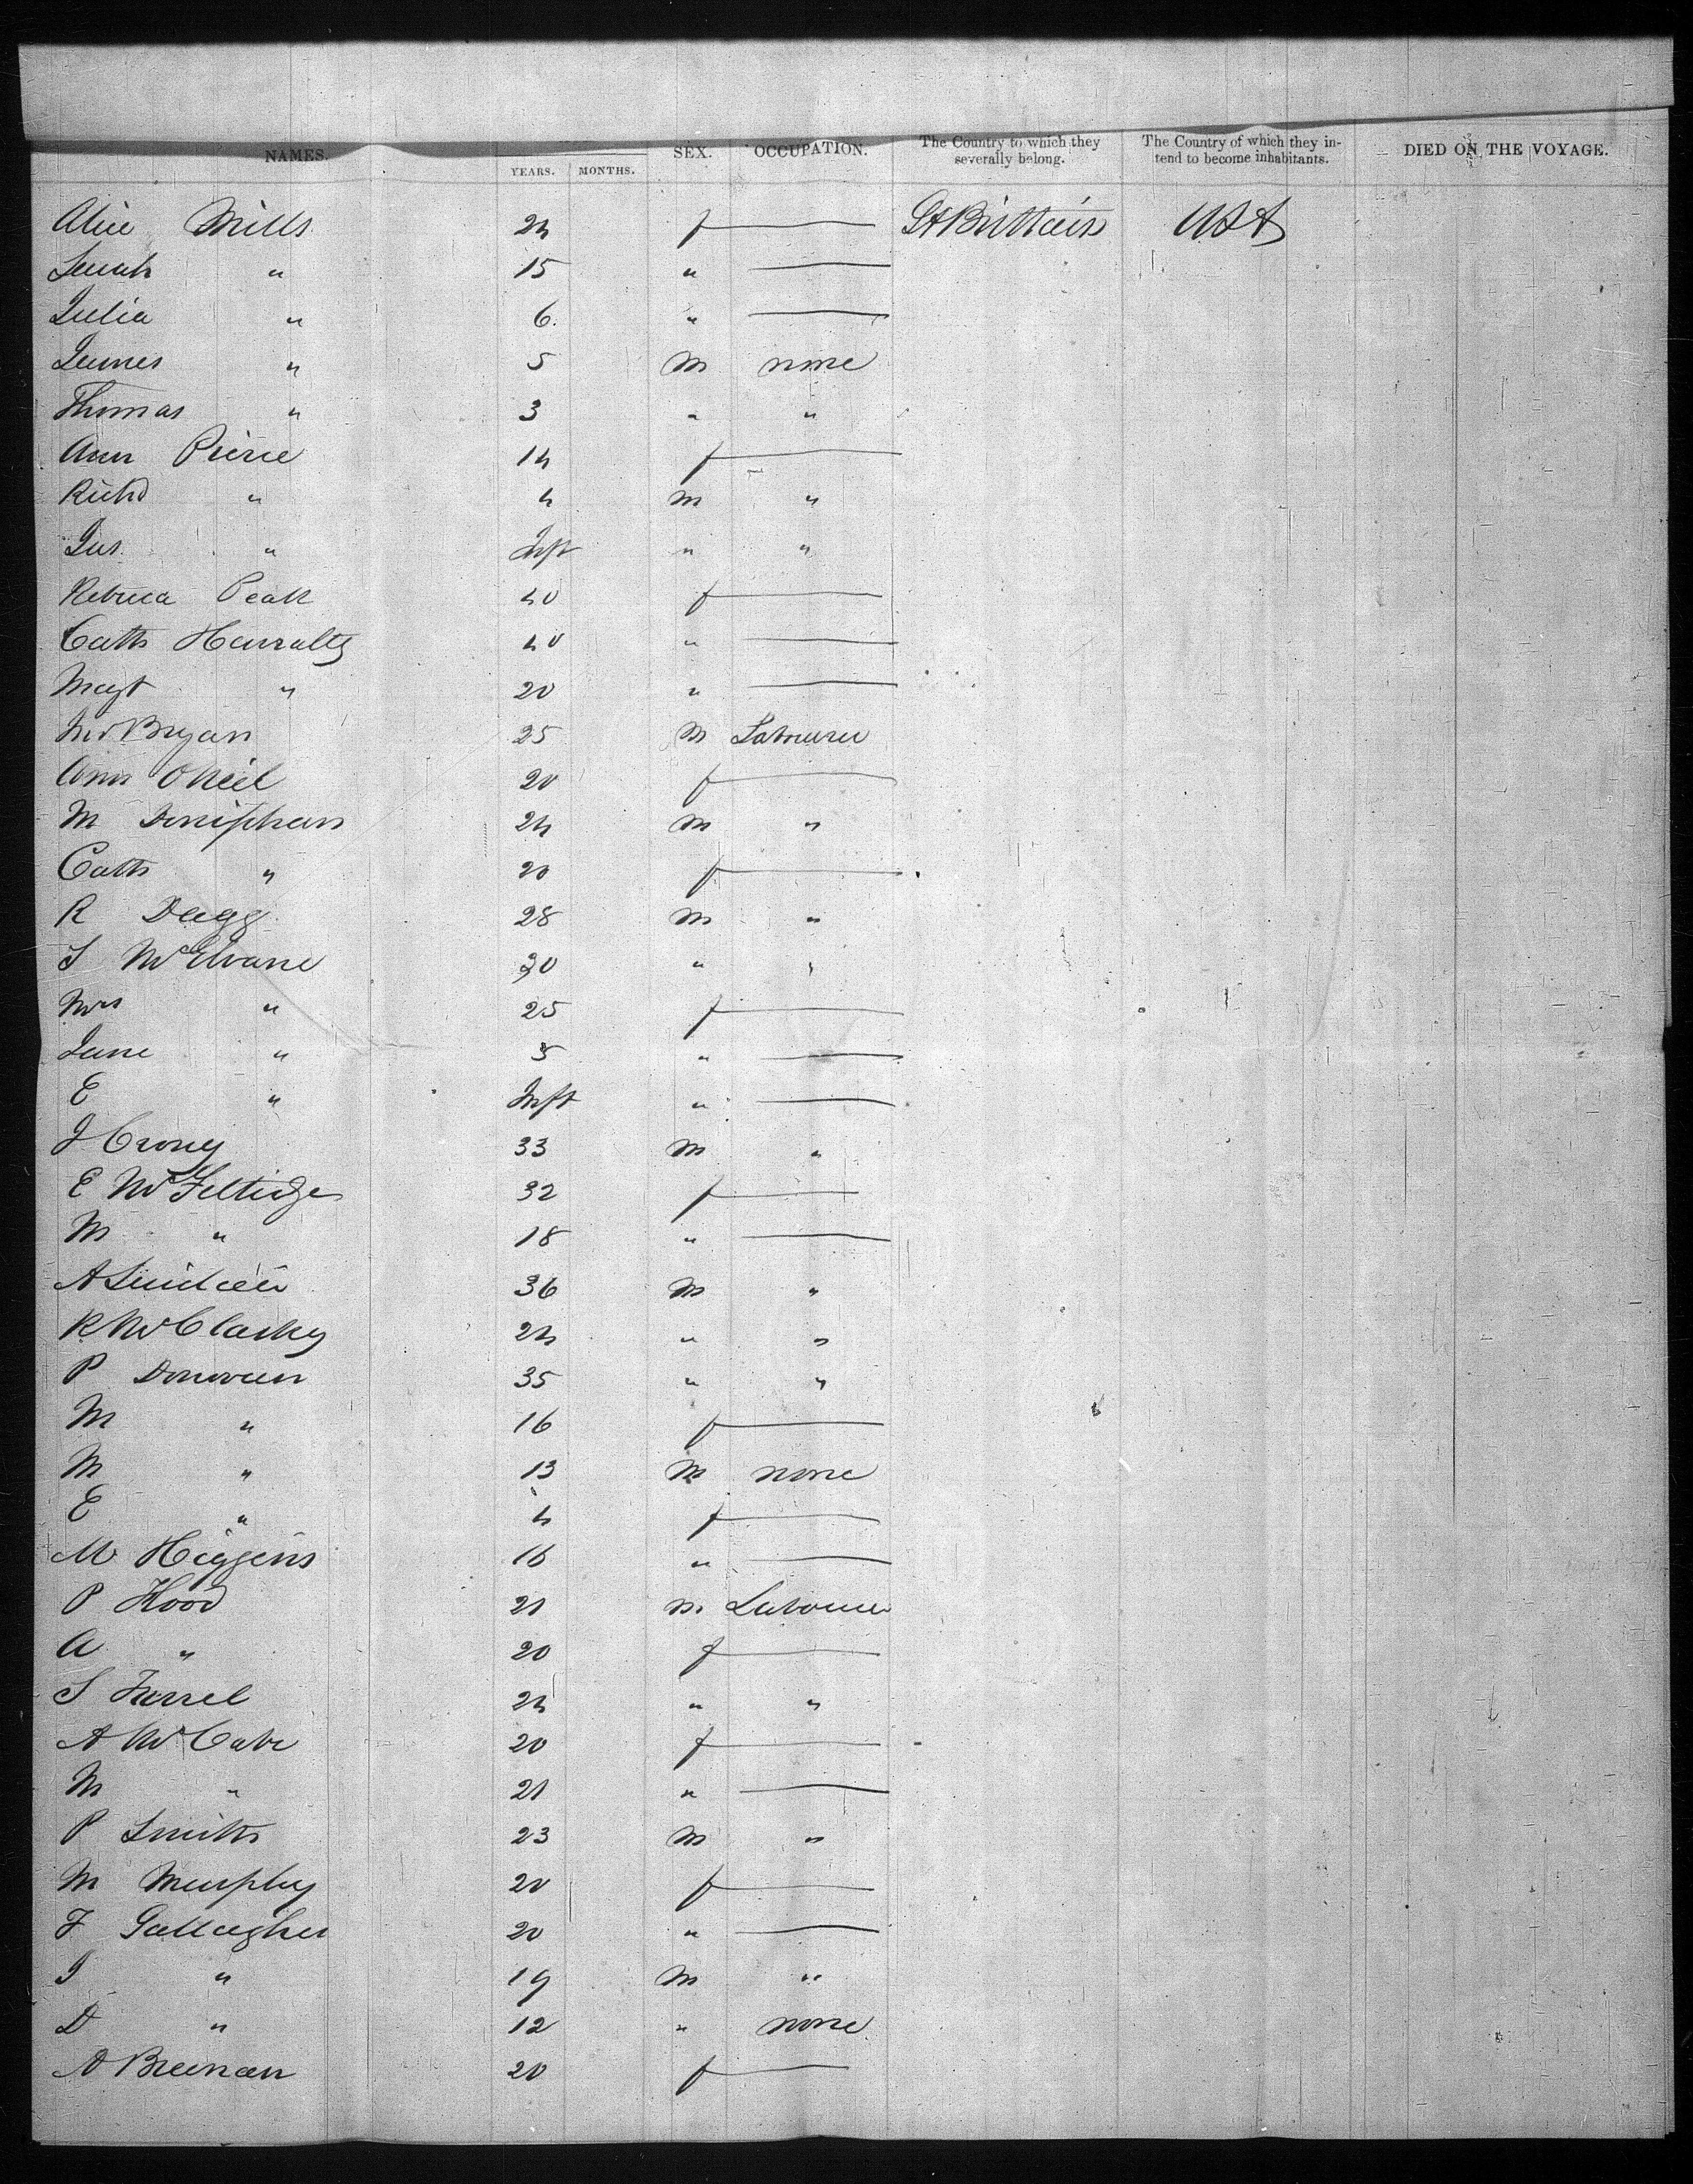 NAMES. YEARS. MONTHS. SEX. OCCUPATION. The Country to which they severally belong. The Country of which they intend to become inhabitants. DIED ON THE VOYAGE.
Alice Mills 24 f — Gt Brittain USA
Sarah " 15 " —
Julia " 6 " —
James " 5 M none
Thomas " 3 " "
Ann Pierce 14 f —
Richd " 4 M "
Jas " Inft " "
Rebecca Peak 40 f —
Cath 40 " —
Magt " 20 " —
Mc Bryan 25 M Labourer
Ann ONeil 20 f —
M Doniphan 24 M "
Cath " 20 f —
R Dagg 28 M "
S McElvane 30 " "
Mrs " 25 f —
Jane " 5 " —
E " Inft " —
J Crony 33 M "
E 32 f —
M " 18 " —
A 36 M "
R McClasky 24 " "
P Donovan 35 " "
M " 16 f —
M " 13 M none
E " 4 f —
M Higgins 16 " —
P Hood 21 M Labourer
A " 20 f —
S 24 " "
A McCabe 20 f —
M " 21 " —
P Smith 23 M "
M Murphy 20 f —
F Gallagher 20 " —
J " 19 M "
D " 12 " none
A Brenan 20 f —